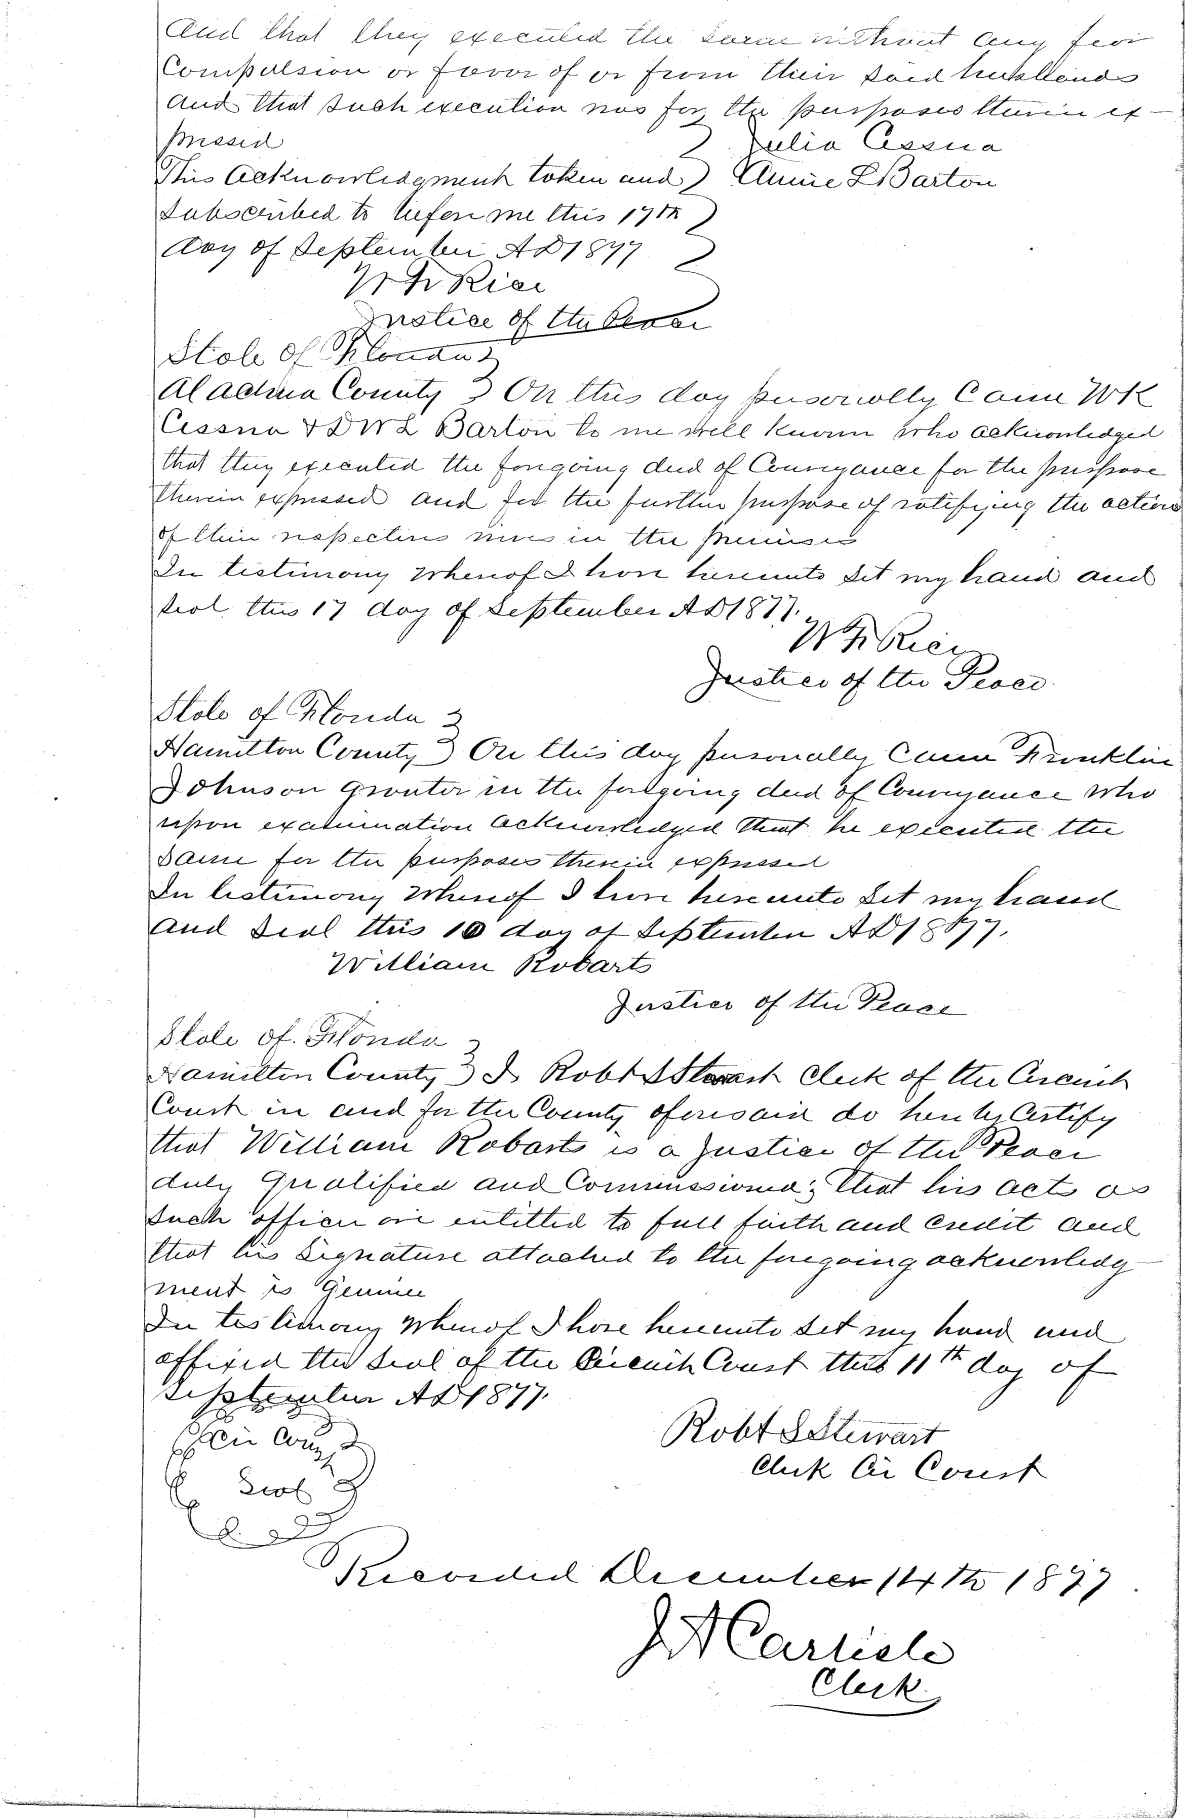 and that they executed the same without any fear
Compulsion or favor of or from their said husbands
and that such execution was for the purposes therein ex-
pressed
Julia Cessna
This Acknowledgment taken and Annie L Barton
Subscribed to before me this 17th
day of September AD 1877
W Rice
Justice of the Peace
State of Florida
Alachua County On this day personally Came WK
Cessna & DWL Barton to me well known who acknowledged
that they executed the foregoing deed of Conveyance for the purpose
therein expressed and for the further purpose of ratifying the action
of their respective wives in the premises
In testimony whereof I have hereunto Set my hand and
seal this 17 day of September AD 1877.
W Rice
Justice of the Peace.
State of Florida
Hamilton County On this day personally Came Franklin
Johnson grantor in the foregoing deed of Conveyance who
upon examination acknowledged that he executed the
same for the purposes therein expressed
In testimony whereof I have hereunto Set my hand
and Seal this 10 day of September AD 1877.
William Robarts
Justice of the Peace
State of. Florida
Hamilton County I Robt S Stewart Clerk of the Circuit
Court in and for the County aforesaid do hereby Certify
that William Robarts is a Justice of the Peace
duly Qualified and Commissioned; that his acts as
such officer are entitled to full faith and credit and
that his Signature attached to the foregoing acknowledg-
ment is Genuine
In testimony whereof I have hereunto set my hand and
affixed the seal of the Circuit Court this 11th day of
September AD 1877.
Cir Court
Seal
Robt S Stewart
Clerk Cir Court
Recorded December 14th 1877.
J A Carlisle
Clerk